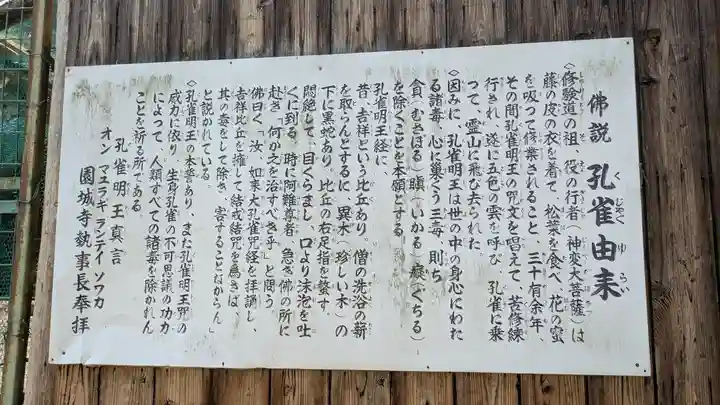 佛説 孔雀由来
くじゃくゆらい
〈修験道の祖、役の行者（神変大菩薩）は
藤の皮の衣を着て、松葉を食べ、花の蜜
を吸って修業されること、三十有余年、
その間孔雀明王の咒文を唱えて、苦修練
行され、遂に五色の雲を呼び、孔雀に乗
って、霊山に飛び去られた
〈因みに、孔雀明王は世の中の身心にわた
る諸毒、心に巣くう三毒、則ち
貪（むさぼる）瞋（いかる）癡（ぐちる）
を除くことを本願とする
孔雀明王経に、
昔、吉祥という比丘あり。僧の洗浴の薪
を取らんとするに、異木（珍しい木）の
下に黒蛇あり。比丘の右足指を螫す。
悶絶して、目くらまし、口より沫泡を吐
くに到る。時に阿難尊者、急ぎ佛の所に
赴き「何が之を治すべき乎」と問う
佛曰く「汝、如来大孔雀咒経を拝誦し、
吉祥比丘を擁して結戒結咒を為さば、
其の毒をして除き、害することなからん」
と説かれている。
〈孔雀明王の本誓あり、また孔雀明王咒の
威力に依り、生身孔雀の不可思議の功力
によって、人類すべての諸毒を除かれん
ことを祈る所である
孔雀明王真言
オン マユラギ ランテイ ソワカ
園城寺執事長奉拝